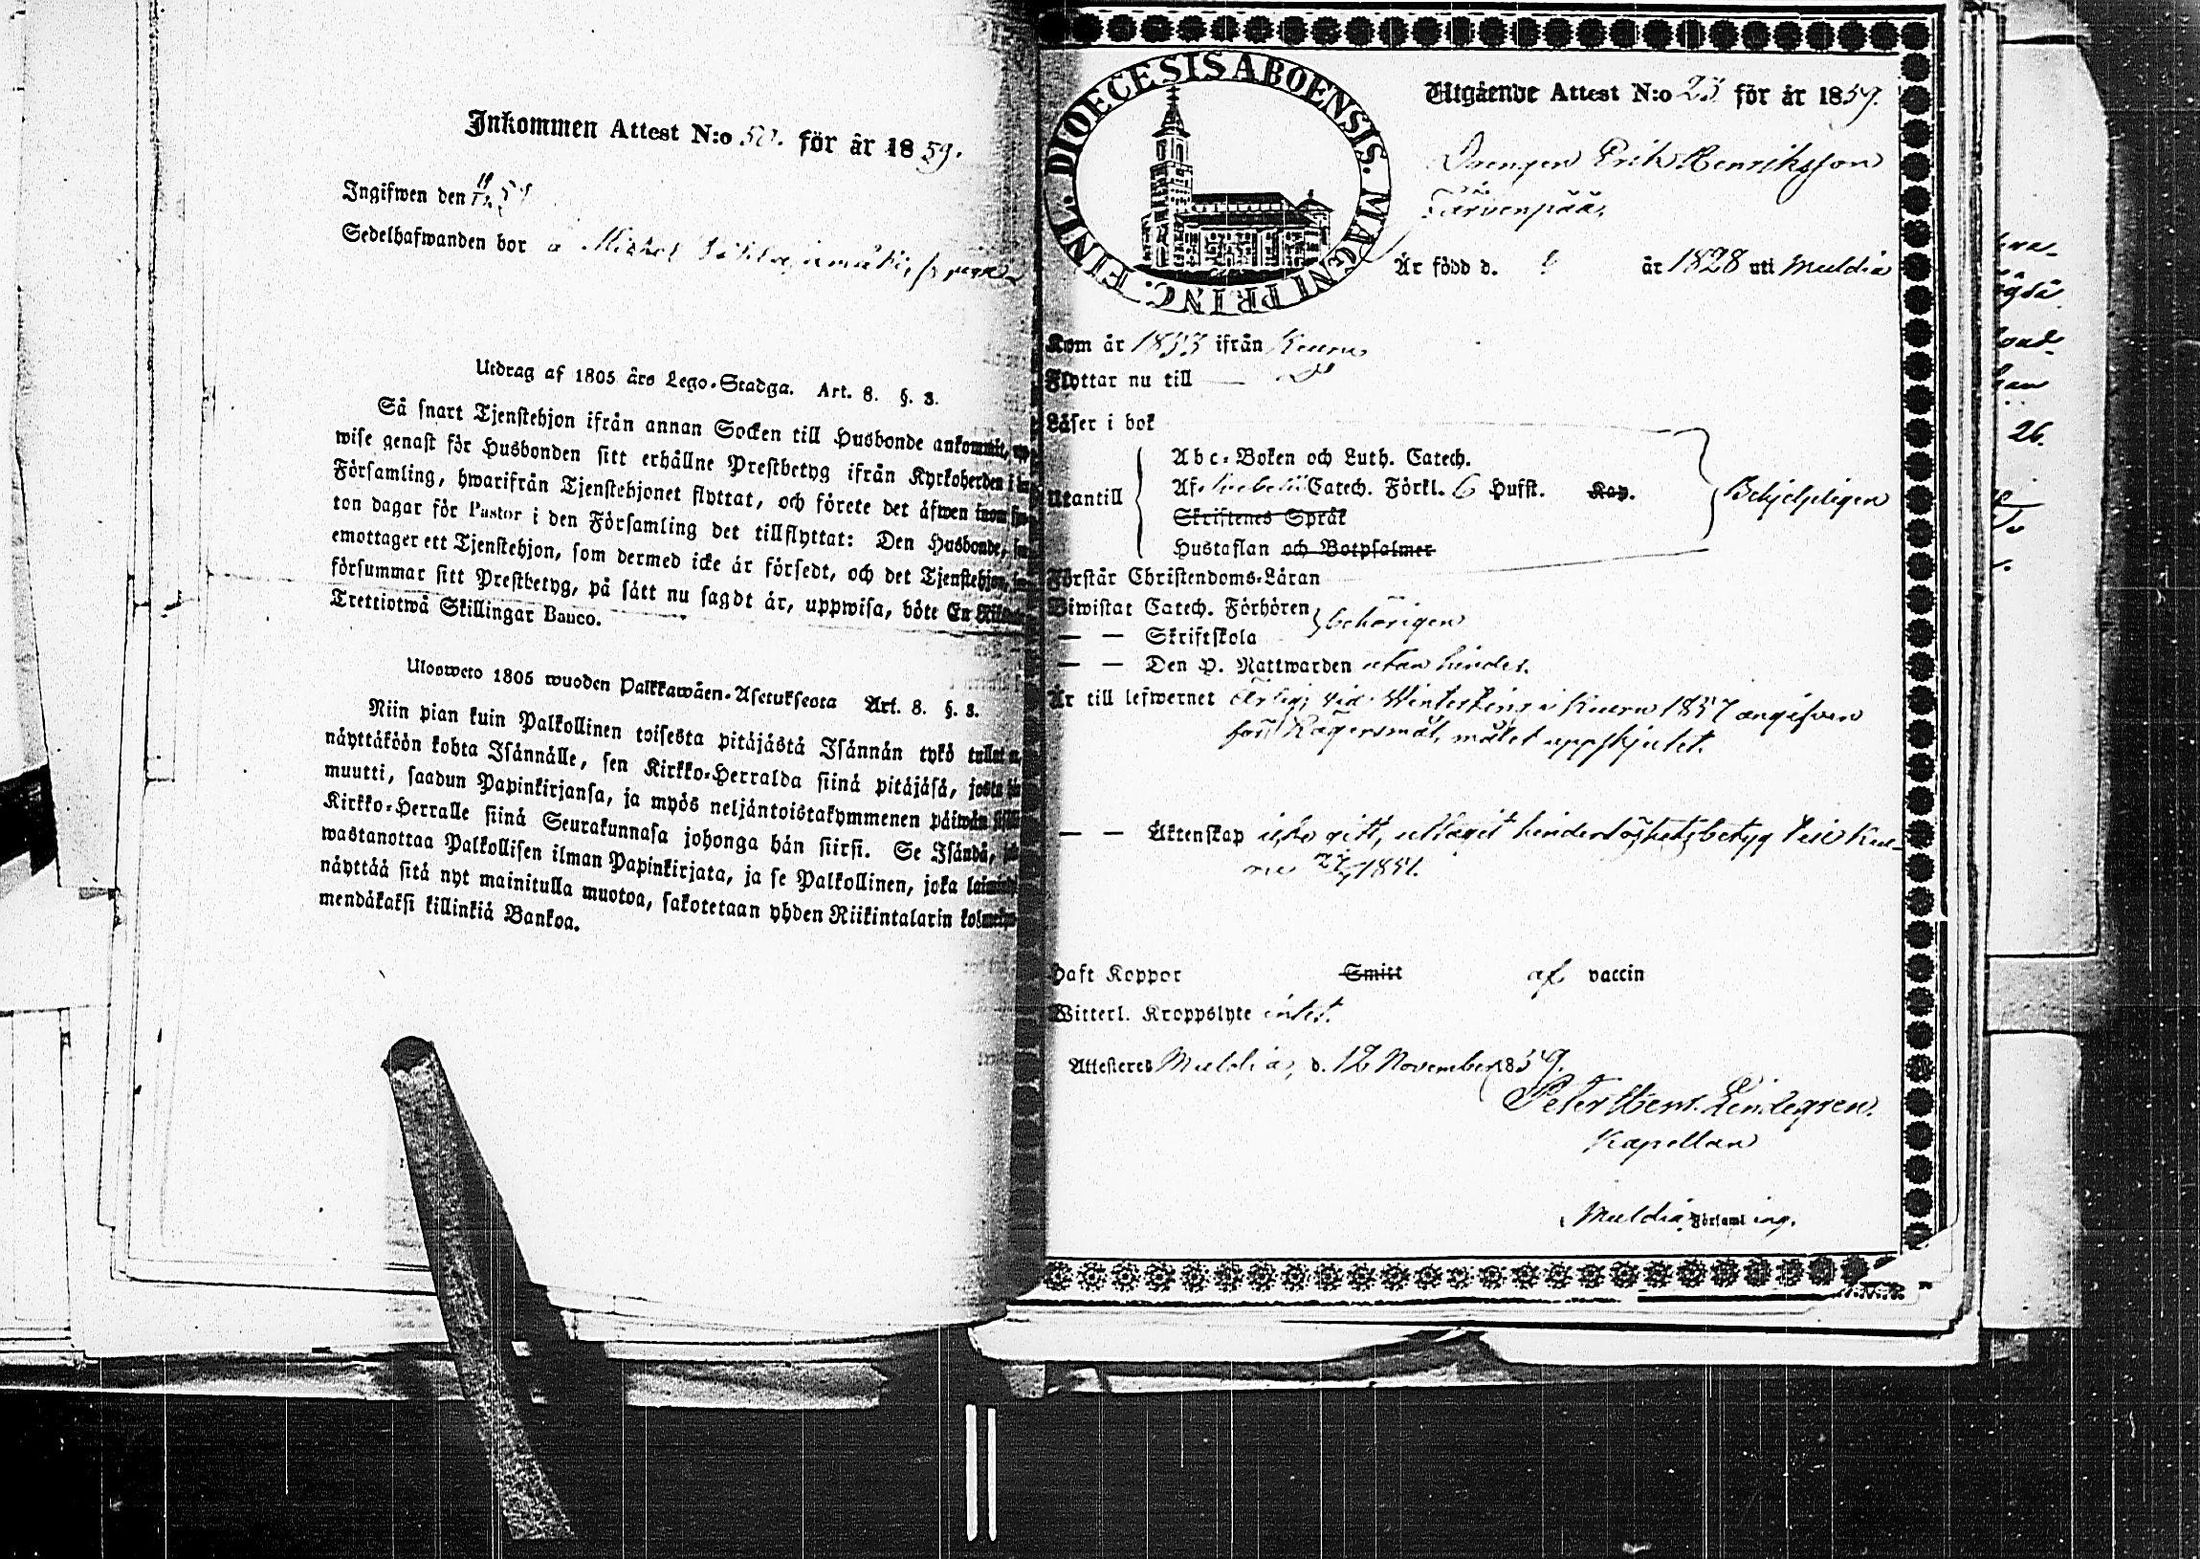 Inkommen Attest N:o 50. för år 1859.
Ingifwen den 19/12 59
Sedelhafwanden bor å Mickel
Utdrag af 1805 års Lego-Stadga. Art. 8. §. 3.
Så snart Tjenstehjon ifrån annan Socken till Husbonde ankommit, up-
wise genast för Husbonden sitt erhållne Prestbetyg ifrån Kyrkoherden i
Församling, hwarifrån Tjenstehjonet flyttat, och förete det äfwen inom
ton dagar för Pastor i den Församling det tillflyttat: Den Husbonde,
emottager ett Tjenstehjon, som dermed icke är försedt, och det Tjenstehjon,
försummar sitt Prestbetyg, på sätt nu sagdt är, uppwisa, böte En Riksdaler
Trettiotwå Skillingar Banco.
Uloswets 1805 wuoden Palkkawäen-Asetuksesta Art. 8. §. 3.
Niin pian kuin Palkollinen toisesta pitäjästä Isännän tykö tullut
näyttäköön kohta Isännälle, sen Kirkko-Herralda siinä pitäjäsä, josta
muutti, saadun Papinkirjansa, ja myös neljäntoistakymmenen päiwän
Kirkko-Herralle siinä Seurakunnasa johonga hän siirsi. Se Isändä,
wastanottaa Palkollisen ilman Papinkirjata, ja se Palkollinen, joka
näyttää sitä nyt mainitulla muotoa, sakotetaan yhden Riikintalarin
mendäkaksi killinkiä Bankoa.
FINL. DIOECESIS ABOENSIS. MAGNI PRINC.
Utgående Attest N:o 23 för år 1859.
Drengen Erik Henriksson
Tärvenpää,
Är född d. år 1828 uti Muldia
Kom år 1853 ifrån Keuru
Flyttar nu till —
Läser i bok
Utantill
Abc-Boken och Luth. Catech.
Af Catech. Förkl. 6 Hufst. Kap.
Skriftenes Språk
Hustaflan och Botpsalmer
Behjelpligen
Förstår Christendoms-Läran
Biwistat Catech. Förhören
— — Skriftskola
behörigen
— — Den H. Nattwarden utan hinder.
Är till lefwernet ärlig; vid Winterting i Keuru 1857 angifven
för Lägersmål, målet uppskjutet.
— — Äktenskap icke gitt, uttagit hinderlöshetsbetyg
Haft Koppor Smitt af vaccin
Witterl. Kroppslyte intet.
Attesteres Muldia, d. 12 November 1859.
Peter Lindegren.
Kapellan
Muldia Församling.
26.